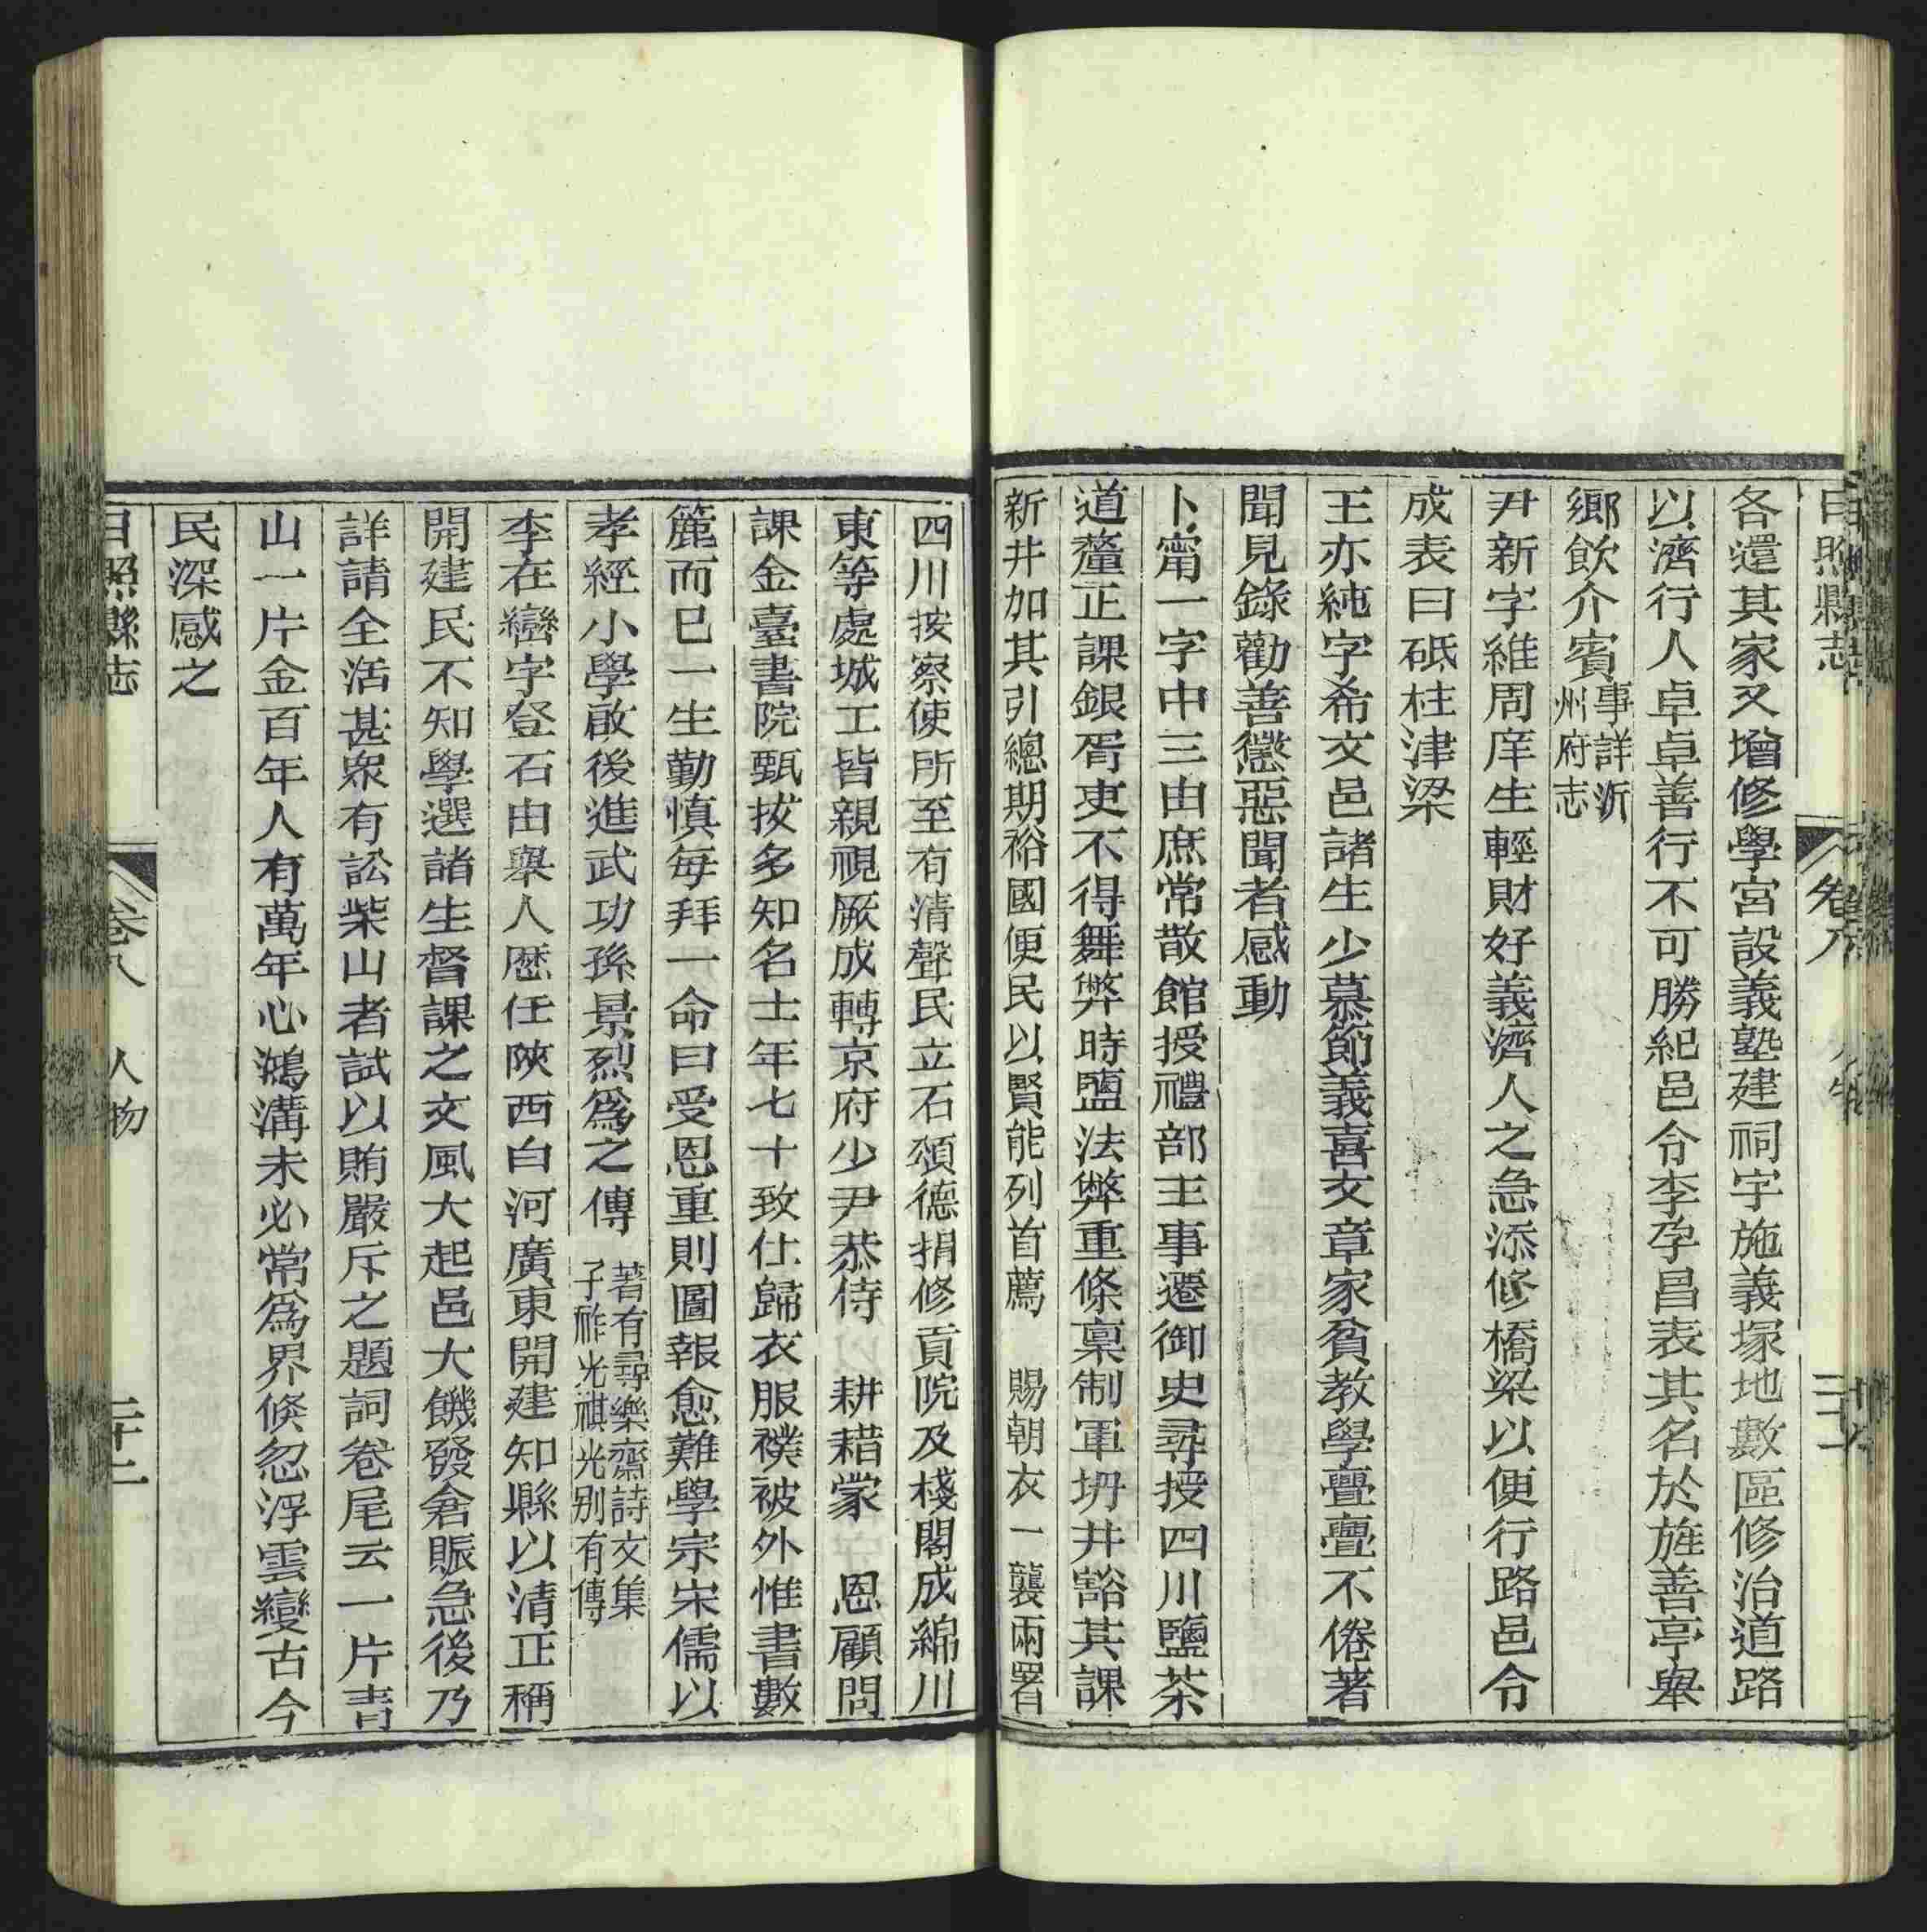 日照縣志 卷八 人物
各還其家又增修學宮設義塾建祠宇施義塚地數區修治道路
以濟行人卓卓善行不可勝紀邑令李孕昌表其名於旌善亭舉
鄉飲介賓事詳沂州府志
尹新字維周庠生輕財好義濟人之急添修橋梁以便行路邑令
成表曰砥柱津梁
王亦純字希文邑諸生少慕節義喜文章家貧教學亹亹不倦著
聞見錄勸善懲惡聞者感動
卜甯一字中三由庶常散館授禮部主事遷御史尋授四川鹽茶
道釐正課銀胥吏不得舞弊時鹽法弊重條稟制軍坍井豁其課
新井加其引總期裕國便民以賢能列首薦 賜朝衣一襲兩署
四川按察使所至有清聲民立石頌德捐修貢院及棧閣成綿川
東等處城工皆親視厥成轉京府少尹恭侍 耕耤蒙 恩顧問
課金臺書院甄拔多知名士年七十致仕歸衣服襆被外惟書數
簏而已一生勤慎每拜一命曰受恩重則圖報愈難學宗宋儒以
孝經小學啟後進武功孫景烈爲之傳 著有尋樂齋詩文集
子祚光祺光別有傳
李在巒字登石由舉人歷任陝西白河廣東開建知縣以清正稱
開建民不知學選諸生督課之文風大起邑大饑發倉賑急後乃
詳請全活甚衆有訟柴山者試以賄嚴斥之題詞卷尾云一片青
山一片金百年人有萬年心鴻溝未必常爲界倏忽浮雲變古今
民深感之
日照縣志 卷八 人物 二十二